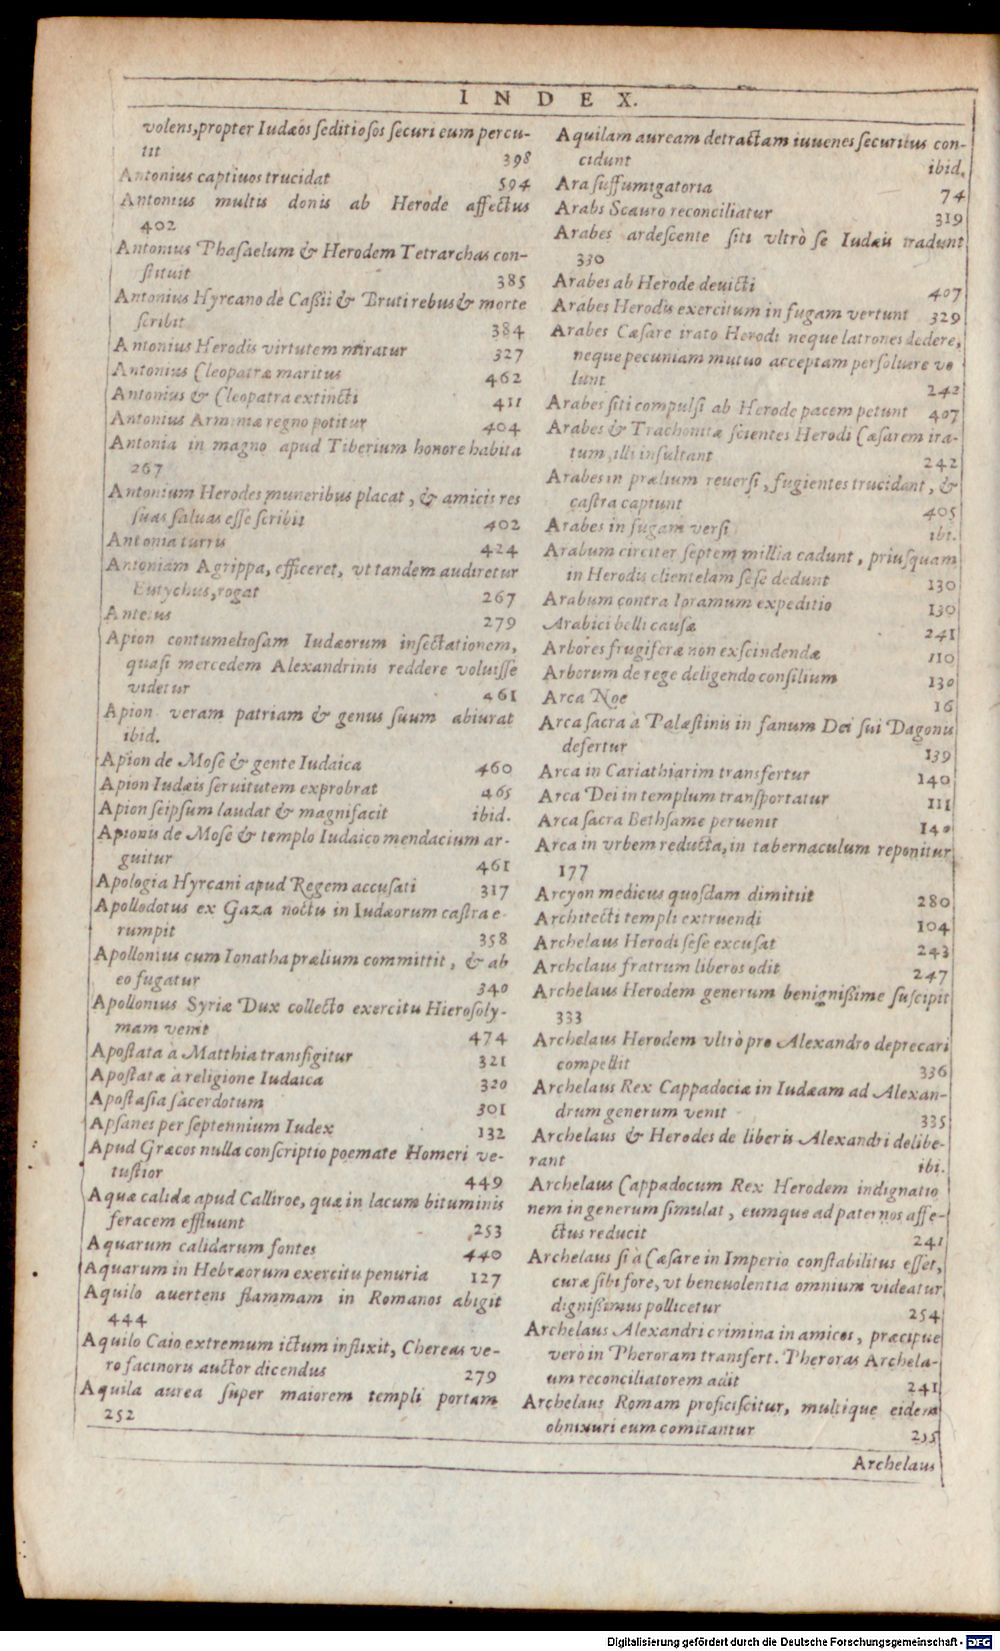 INDEX.
volens, propter Iudæos seditiosos securi eum percu-
tit 398
Antonius captiuos trucidat 594
Antonius multis donis ab Herode affectus
402
Antonius Phasaelum & Herodem Tetrarchas con-
stituit 385
Antonius Hyrcano de Caßii & Bruti rebus & morte
scribit 384
Antonius Herodis virtutem miratur 327
Antonius Cleopatræ maritus 462
Antonius & Cleopatra extincti 411
Antonius Armeniæ regno potitur 404
Antonia in magno apud Tiberium honore habita
267
Antonium Herodes muneribus placat, & amicis res
suas saluas esse scribit 402
Antonia turris 424
Antoniam Agrippa, efficeret, vt tandem audiretur
Eutychus, rogat 267
Anteius 279
Apion contumeliosam Iudæorum insectationem,
quasi mercedem Alexandrinis reddere voluisse
videtur 461
Apion veram patriam & genus suum abiurat
ibid.
Apion de Mose & gente Iudaica 460
Apion Iudæis seruitutem exprobrat 465
Apion seipsum laudat & magnifacit ibid.
Apionis de Mose & templo Iudaico mendacium ar-
guitur 461
Apologia Hyrcani apud Regem accusati 317
Apollodotus ex Gaza noctu in Iudæorum castra e-
rumpit 358
Apollonius cum Ionatha prælium committit, & ab
eo fugatur 340
Apollonius Syriæ Dux collecto exercitu Hierosoly-
mam venit 474
Apostata à Matthia transfigitur 321
Apostatæ à religione Iudaica 320
Apostasia sacerdotum 301
Apsanes per septennium Iudex 132
Apud Græcos nulla conscriptio poemate Homeri ve-
tustior 449
Aquæ calidæ apud Calliroe, quæ in lacum bituminis
feracem effluunt 253
Aquarum calidarum fontes 440
Aquarum in Hebræorum exercitu penuria 127
Aquilo auertens flammam in Romanos abigit
444
Aquilo Caio extremum ictum inflixit, Chereas ve-
ro facinoris auctor dicendus 279
Aquila aurea super maiorem templi portam
252
Aquilam auream detractam iuuenes securitus con-
cidunt ibid.
Ara suffumigatoria 74
Arabs Scauro reconciliatur 319
Arabes ardescente siti vltrò se Iudæis tradunt
330
Arabes ab Herode deuicti 407
Arabes Herodis exercitum in fugam vertunt 329
Arabes Cæsare irato Herodi neque latrones dedere,
neque pecuniam mutuo acceptam persoluere vo
lunt 242
Arabes siti compulsi ab Herode pacem petunt 407
Arabes & Trachonitæ scientes Herodi Cæsarem ira-
tum, illi insultant 242
Arabes in prælium reuersi, fugientes trucidant, &
castra captunt 405
Arabes in fugam versi ibi.
Arabum circiter septem millia cadunt, priusquam
in Herodis clientelam sese dedunt 130
Arabum contra Ioramum expeditio 130
Arabici belli causæ 241
Arbores frugiferæ non exscindendæ 110
Arborum de rege deligendo consilium 130
Arca Noe 16
Arca sacra à Palæstinis in fanum Dei sui Dagonis
defertur 139
Arca in Cariathiarim transfertur 140
Arca Dei in templum transportatur 111
Arca sacra Bethsame peruenit 140
Arca in vrbem reducta, in tabernaculum reponitur
177
Arcyon medicus quosdam dimittit 280
Architecti templi extruendi 104
Archelaus Herodi sese excusat 243
Archelaus fratrum liberos odit 247
Archelaus Herodem generum benignißime suscipit
333
Archelaus Herodem vltrò pro Alexandro deprecari
compellit 336
Archelaus Rex Cappadociæ in Iudæam ad Alexan-
drum generum venit 335
Archelaus & Herodes de liberis Alexandri delibe-
rant ibi.
Archelaus Cappadocum Rex Herodem indignatio
nem in generum simulat, eumque ad paternos affe-
ctus reducit 241
Archelaus si à Cæsare in Imperio constabilitus esset,
curæ sibi fore, vt beneuolentia omnium videatur
dignißimus pollicetur 254
Archelaus Alexandri crimina in amicos, præcipue
verò in Pheroram transfert. Pheroras Archela-
um reconciliatorem adit 241
Archelaus Romam proficiscitur, multique eidem
obnixuri eum comitantur 255
Archelaus
Digitalisierung gefördert durch die Deutsche Forschungsgemeinschaft - DFG